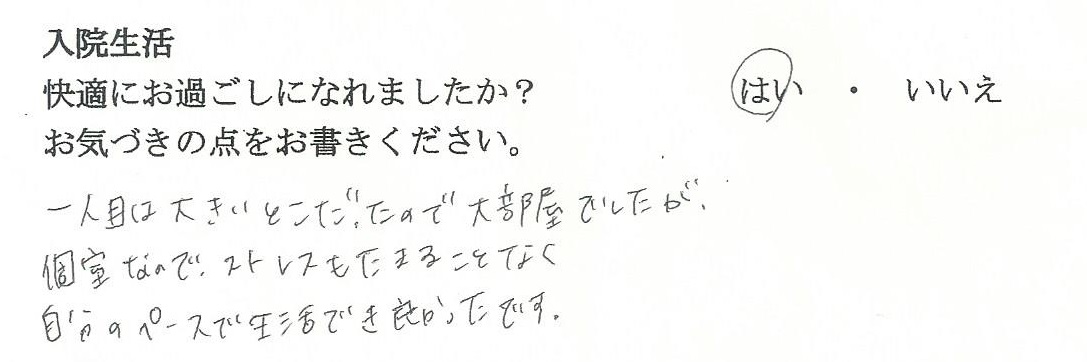 入院生活
快適にお過ごしになれましたか？ はい ・ いいえ
お気づきの点をお書きください。
一人目は大きいとこだったので大部屋でしたが、
個室なので、ストレスもたまることなく
自分のペースで生活でき良かったです。